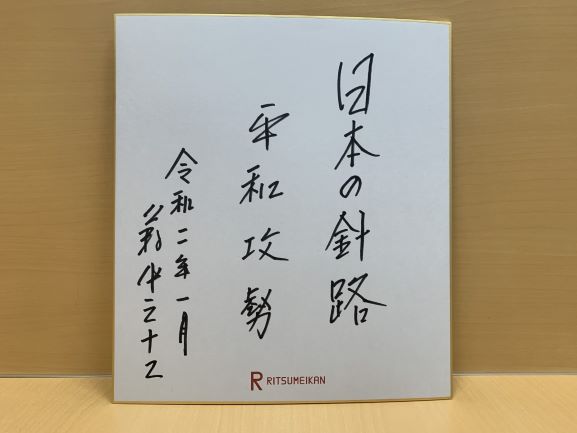 日本の針路
平和攻勢
令和二年一月
藪中三十二
RITSUMEIKAN